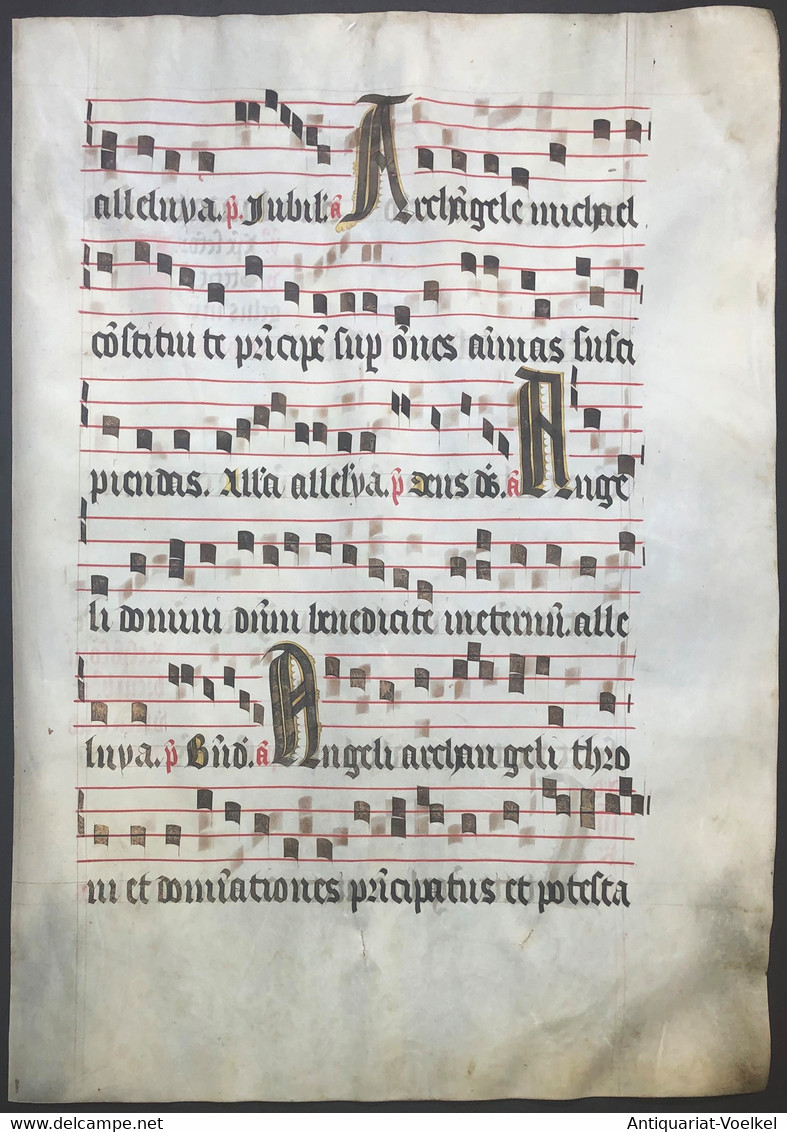 alleluya. p̄. Jubil. a̅ Archāgele michael
cōstitui te prīcipē suꝑ oēs aīmas susci
piendas. All'a allel'ya. p̄ Deus ds̄. a̅ Ange
li domini dn̄m benedicite ineternū. alle
luya. p̄ Bn̄d. a̅ Angeli archangeli thro
ni et domīationes prīcipatus et potesta
Antiquariat-Voelkel